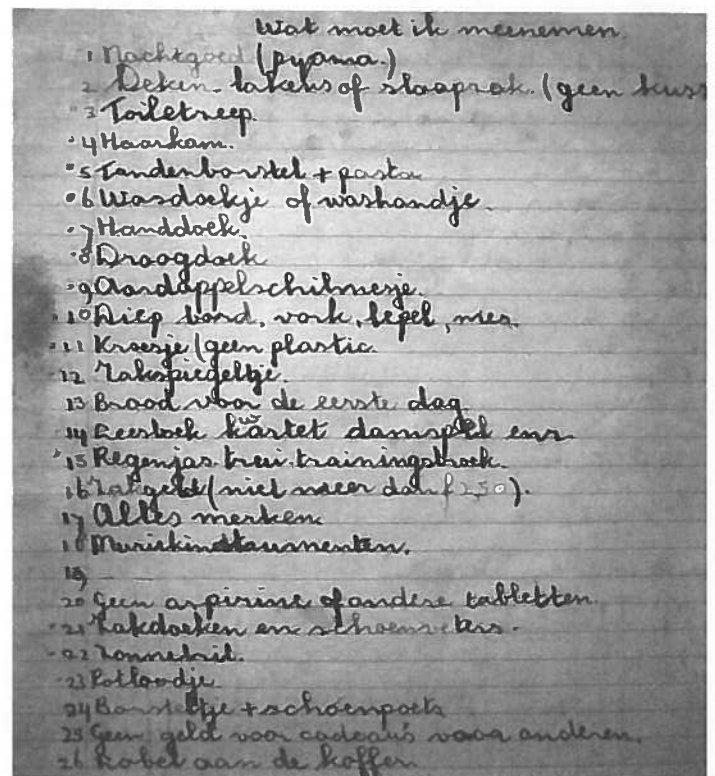 Wat moet ik meenemen
1 Nachtgoed (pyama.)
2 Deken - lakens of slaapzak. (geen kuss
3 Toiletzeep.
4 Haarkam.
5 Tandenborstel + pasta
6 Wasdoekje of washandje.
7 Handdoek.
8 Droogdoek
9 Aardappelschilmesje.
10 Diep bord, vork, lepel, mes.
11 Kroesje (geen plastic.
12 Zakspiegeltje.
13 Brood voor de eerste dag
14 Leesboek damspel enz.
15 Regenjas. trui. trainingsbroek.
16 Zakgeld (niet meer dan f 2,50).
17 Alles merken.
18 Muziekinstrumenten.
19
20 Geen aspirine of andere tabletten.
21 Zakdoeken en schoenveters.
22 Zonnebril.
23 Potloodje
24 Borsteltje + schoenpoets
25 Geen geld voor cadeau's voor anderen.
26 Label aan de koffer.